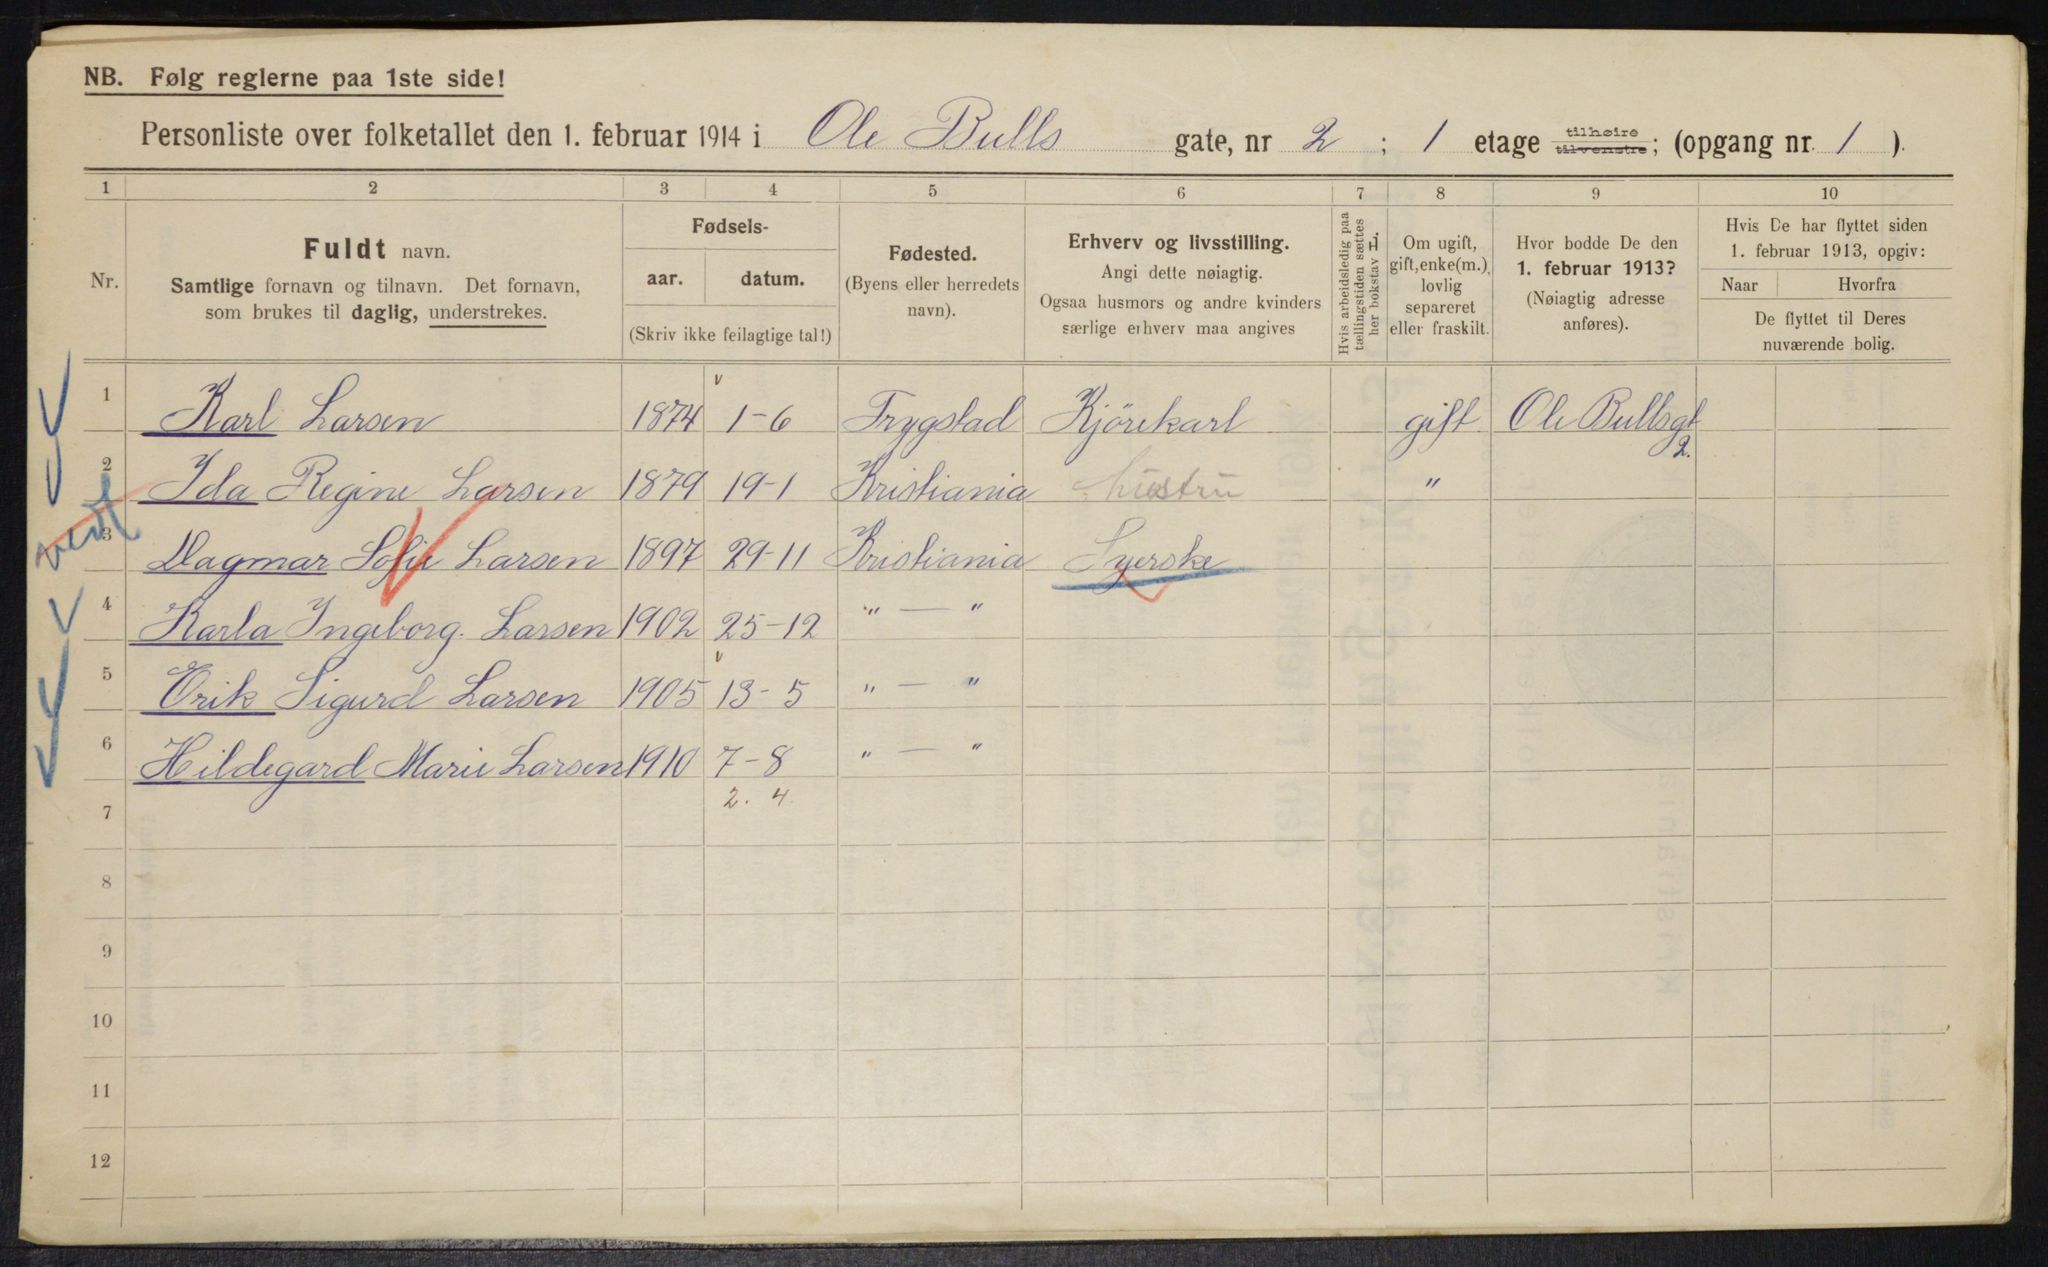 NB. Følg reglerne paa 1ste side!
Personliste over folketallet den 1. februar 1914 i Ole Bulls gate, nr 2 ; 1 etage tilhøire tilvenstre; (opgang nr. 1 ).
1 2 3 4 5 6 7 8 9 10
Nr.
Fuldt navn.
Samtlige fornavn og tilnavn. Det fornavn,
som brukes til daglig, understrekes.
Fødsels-
aar. datum.
(Skriv ikke feilagtige tal!)
Fødested.
(Byens eller herredets
navn).
Erhverv og livsstilling.
Angi dette nøiagtig.
Ogsaa husmors og andre kvinders
særlige erhverv maa angives
Hvis arbeidsledig paa
tællingstiden sættes
her bokstav L.
Om ugift,
gift, enke(m.),
lovlig
separeret
eller fraskilt.
Hvor bodde De den
1. februar 1913?
(Nøiagtig adresse
anføres).
Hvis De har flyttet siden
1. februar 1913, opgiv:
Naar Hvorfra
De flyttet til Deres
nuværende bolig.
1 Karl Larsen 1874 1-6 Trygstad Kjörekarl gift Ole Bullsgt 2.
2 Ida Regine Larsen 1879 19-1 Kristiania hustru "
3 Dagmar Sofie Larsen 1897 29-11 Kristiania Syerske
4 Karla Ingeborg. Larsen 1902 25-12 " — "
5 Erik Sigurd Larsen 1905 13-5 " — "
6 Hildegard Marie Larsen 1910 7-8 " — "
7 2. 4.
8
9
10
11
12